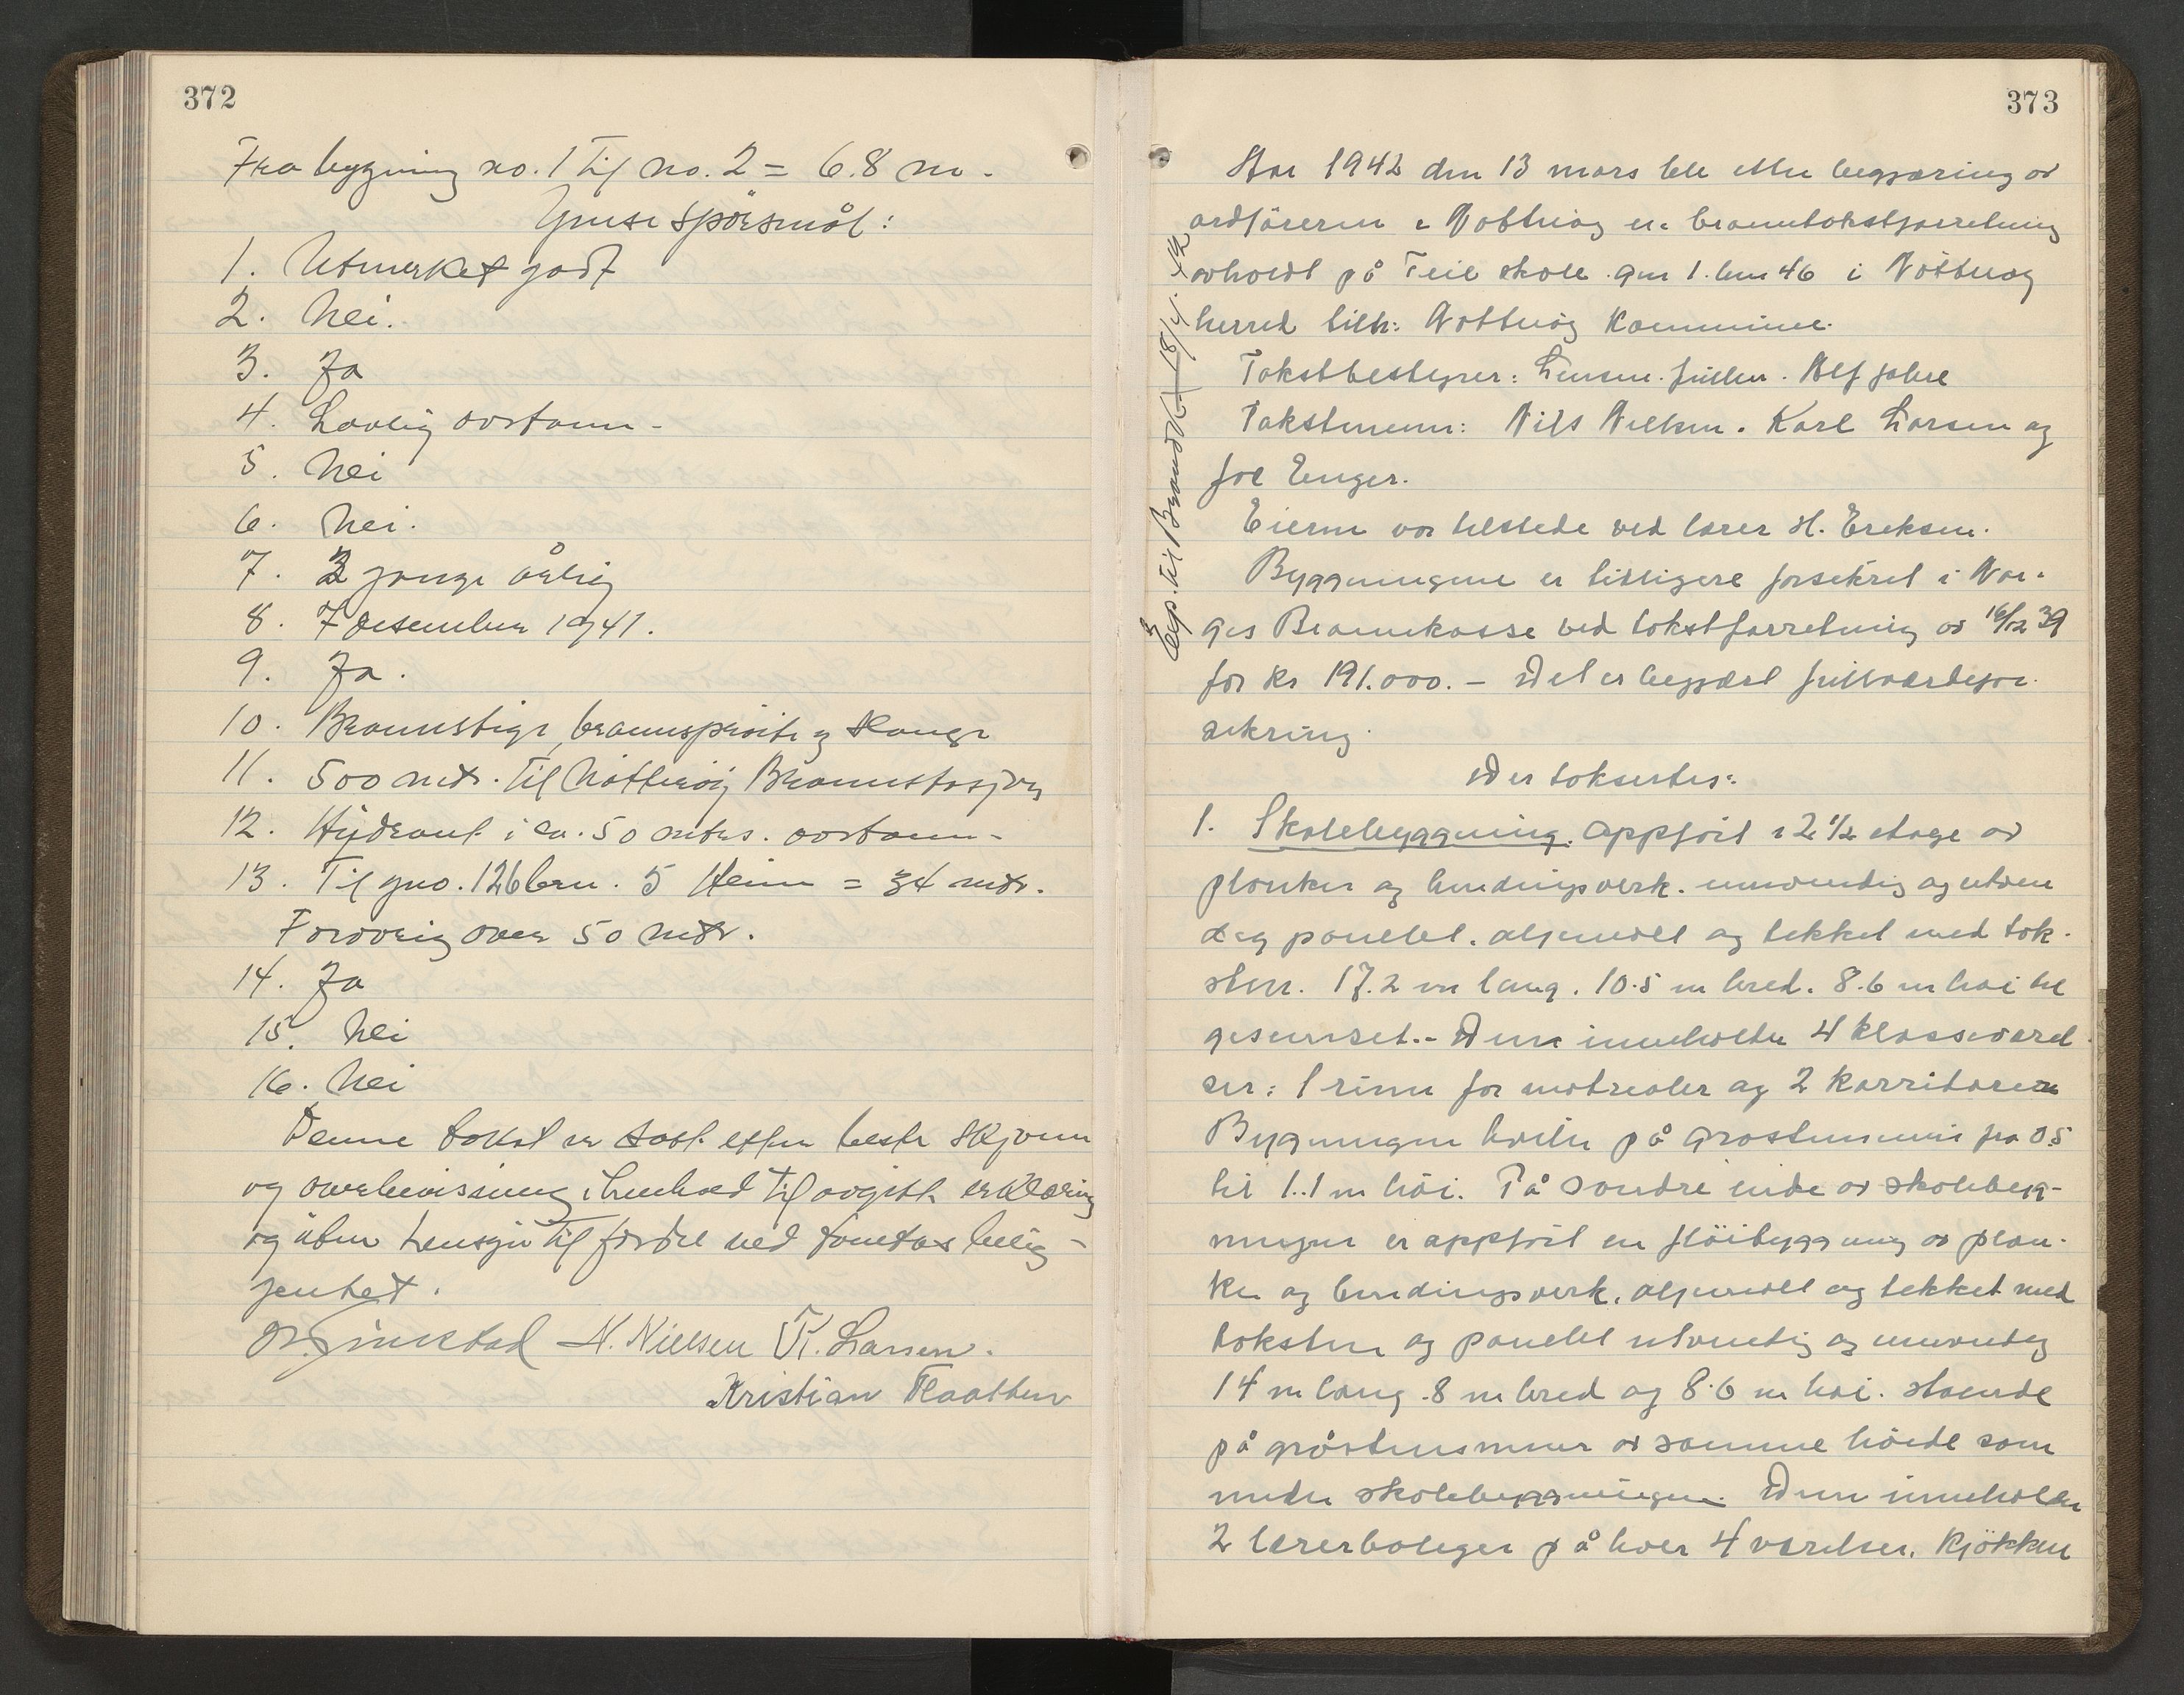 372
Fra bygning no. 1 til no. 2 = 6.8 m.
Ymse spörsmål:
1. Utmerket godt
2. Nei.
3. Ja
4. Lovlig avstann.
5. Nei
6. Nei.
7. 2 gange årlig
8. 7 desember 1941.
9. Ja.
10. Brannstige, brannspröite og slange
11. 500 mtr. til Nötteröy Brannstasjon
12. Hydrant i ca. 50 mtrs. avstann.
13. Til gno. 126 brn. 5 Heim = 34 mtr.
Forövrig over 50 mtr.
14. Ja
15. Nei
16. Nei
Denne takst er satt efter beste skjönn
og overbevisning i henhold til avgitt erklæring
og uten hensyn til fordel ved tomtas belig-
genhet.
N. Nielsen K. Larsen.
Kristian Flaatten
373
Aar 1942 den 13 mars ble etter begjæring av
ordföreren i Nötteröy en branntakstforretning
avholdt på Teie skole gnr 1. bnr 46 i Nötteröy
herred tilh: Nötteröy Kommune.
Takstbestyrer: Lensm. fullm. Alf Jahre
Takstmenn: Nils Nielsen. Karl Larsen og
Joe Enger.
Eieren var tilstede ved lærer H. Eriksen.
Byggningene er tidligere forsikret i Nor-
ges Brannkasse ved takstforretning av 16/12 39
for kr 191.000.- Det er begjært fullverdifor-
sikring.
Der takseres:
1. Skolebyggning. Oppfört i 2 1/2 etage av
planker og bindingsverk. innvendig og utven
dig panelet. oljemalt og tekket med tak-
sten. 17.2 m lang. 10.5 m bred. 8.6 m høi til
gesimset.- Den inneholder 4 klasseværel
ser: 1 rum for matrealer og 2 korridorer
Bygningen hviler på gråstensmur fra 0.5
til 1.1 m höi. På söndre ende av skolebygg-
ningen er oppfört en flöibyggning av plan-
ker og bindingsverk, oljemalt og tekket med
taksten og panelet utvendig og innvendig
14 m lang. 8 m bred og 8.6 m høi. stående
på gråstensmur av samme höide som
under skolebyggningen. Den inneholder
2 lærerboliger på hver 4 værelser. Kjökken
Exp. til Brannk. 18/4 42